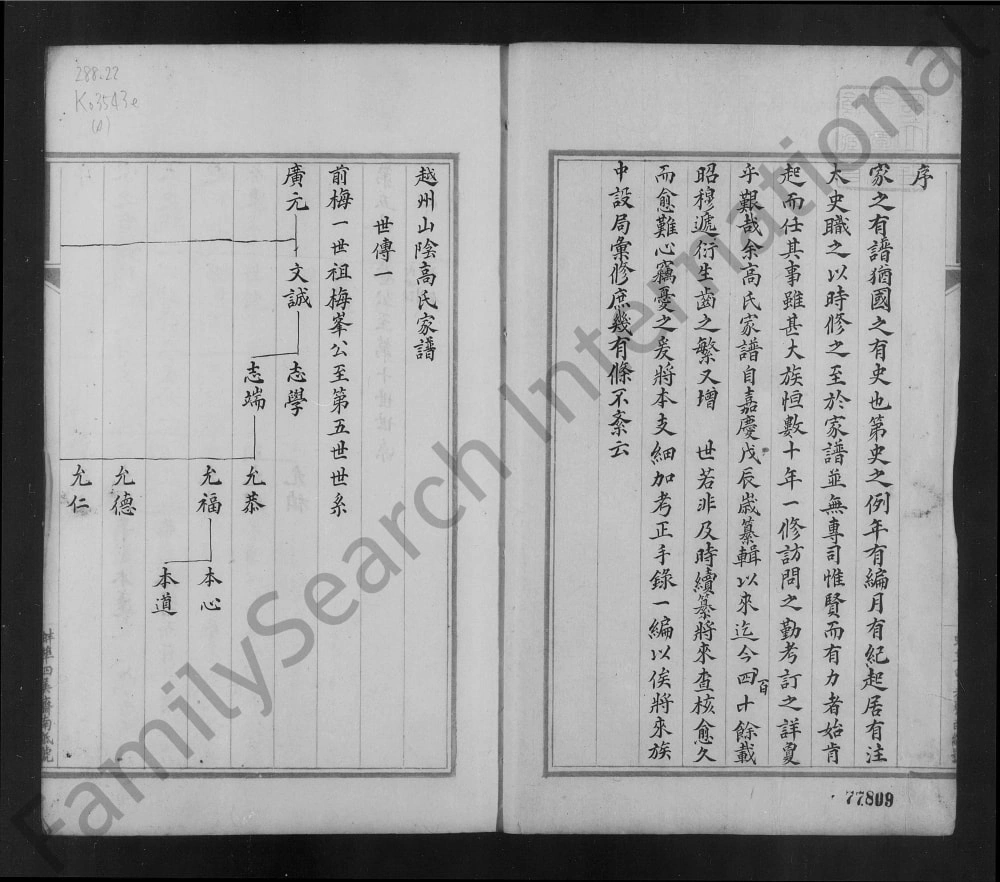 序
家之有譜猶國之有史也第史之例年有編月有紀起居有注
太史職之以時修之至於家譜並無專司惟賢而有力者始肯
起而任其事雖甚大族恒數十年一修訪問之勤考訂之詳戛
乎艱哉余高氏家譜自嘉慶戊辰歲纂輯以來迄今四十餘載
百
昭穆遞衍生齒之繁又增 世若非及時續纂將來查核愈久
而愈難心竊憂之爰將本支細加考正手錄一編以俟將來族
中設局彙修庶幾有條不紊云
77809
288.22
K.3543e
(1)
越州山陰高氏家譜
世傳一
前梅一世祖梅峯公至第五世世系
廣元 文誠 志學
志端 允恭
允福 本心
本道
允德
允仁
FamilySearch International